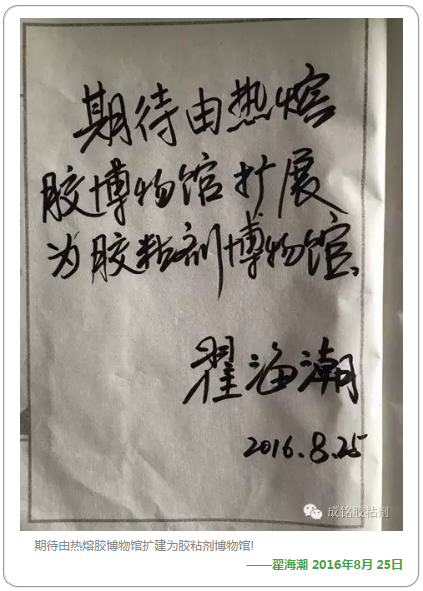 期待由热熔
胶博物馆扩展
为胶粘剂博物馆、
翟海潮
2016.8.25
成铭胶粘剂
期待由热熔胶博物馆扩建为胶粘剂博物馆!
——翟海潮 2016年8月 25日